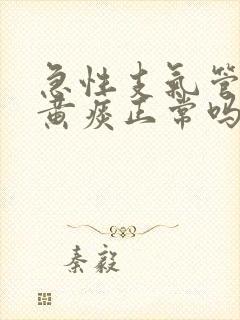 急性支气管
黄痰正常吗
秦毅